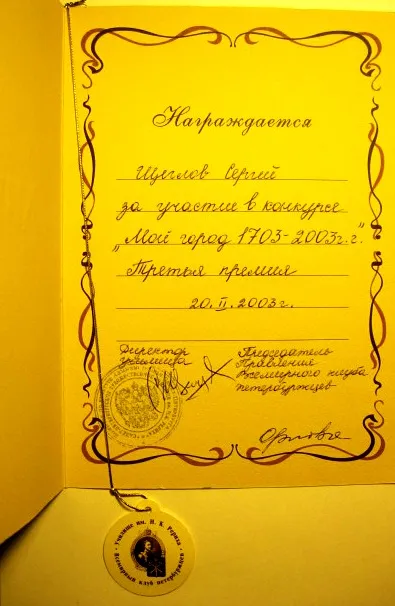 Награждается
Щеглов Сергей
за участие в конкурсе
„Мой город 1703-2003г.г."
Третья премия
20.II.2003г.
Директор
училища
Председатель
Правления
Всемирного клуба
петербуржцев
Орлова
Училище им. Н. К. Рериха
Всемирный клуб петербуржцев